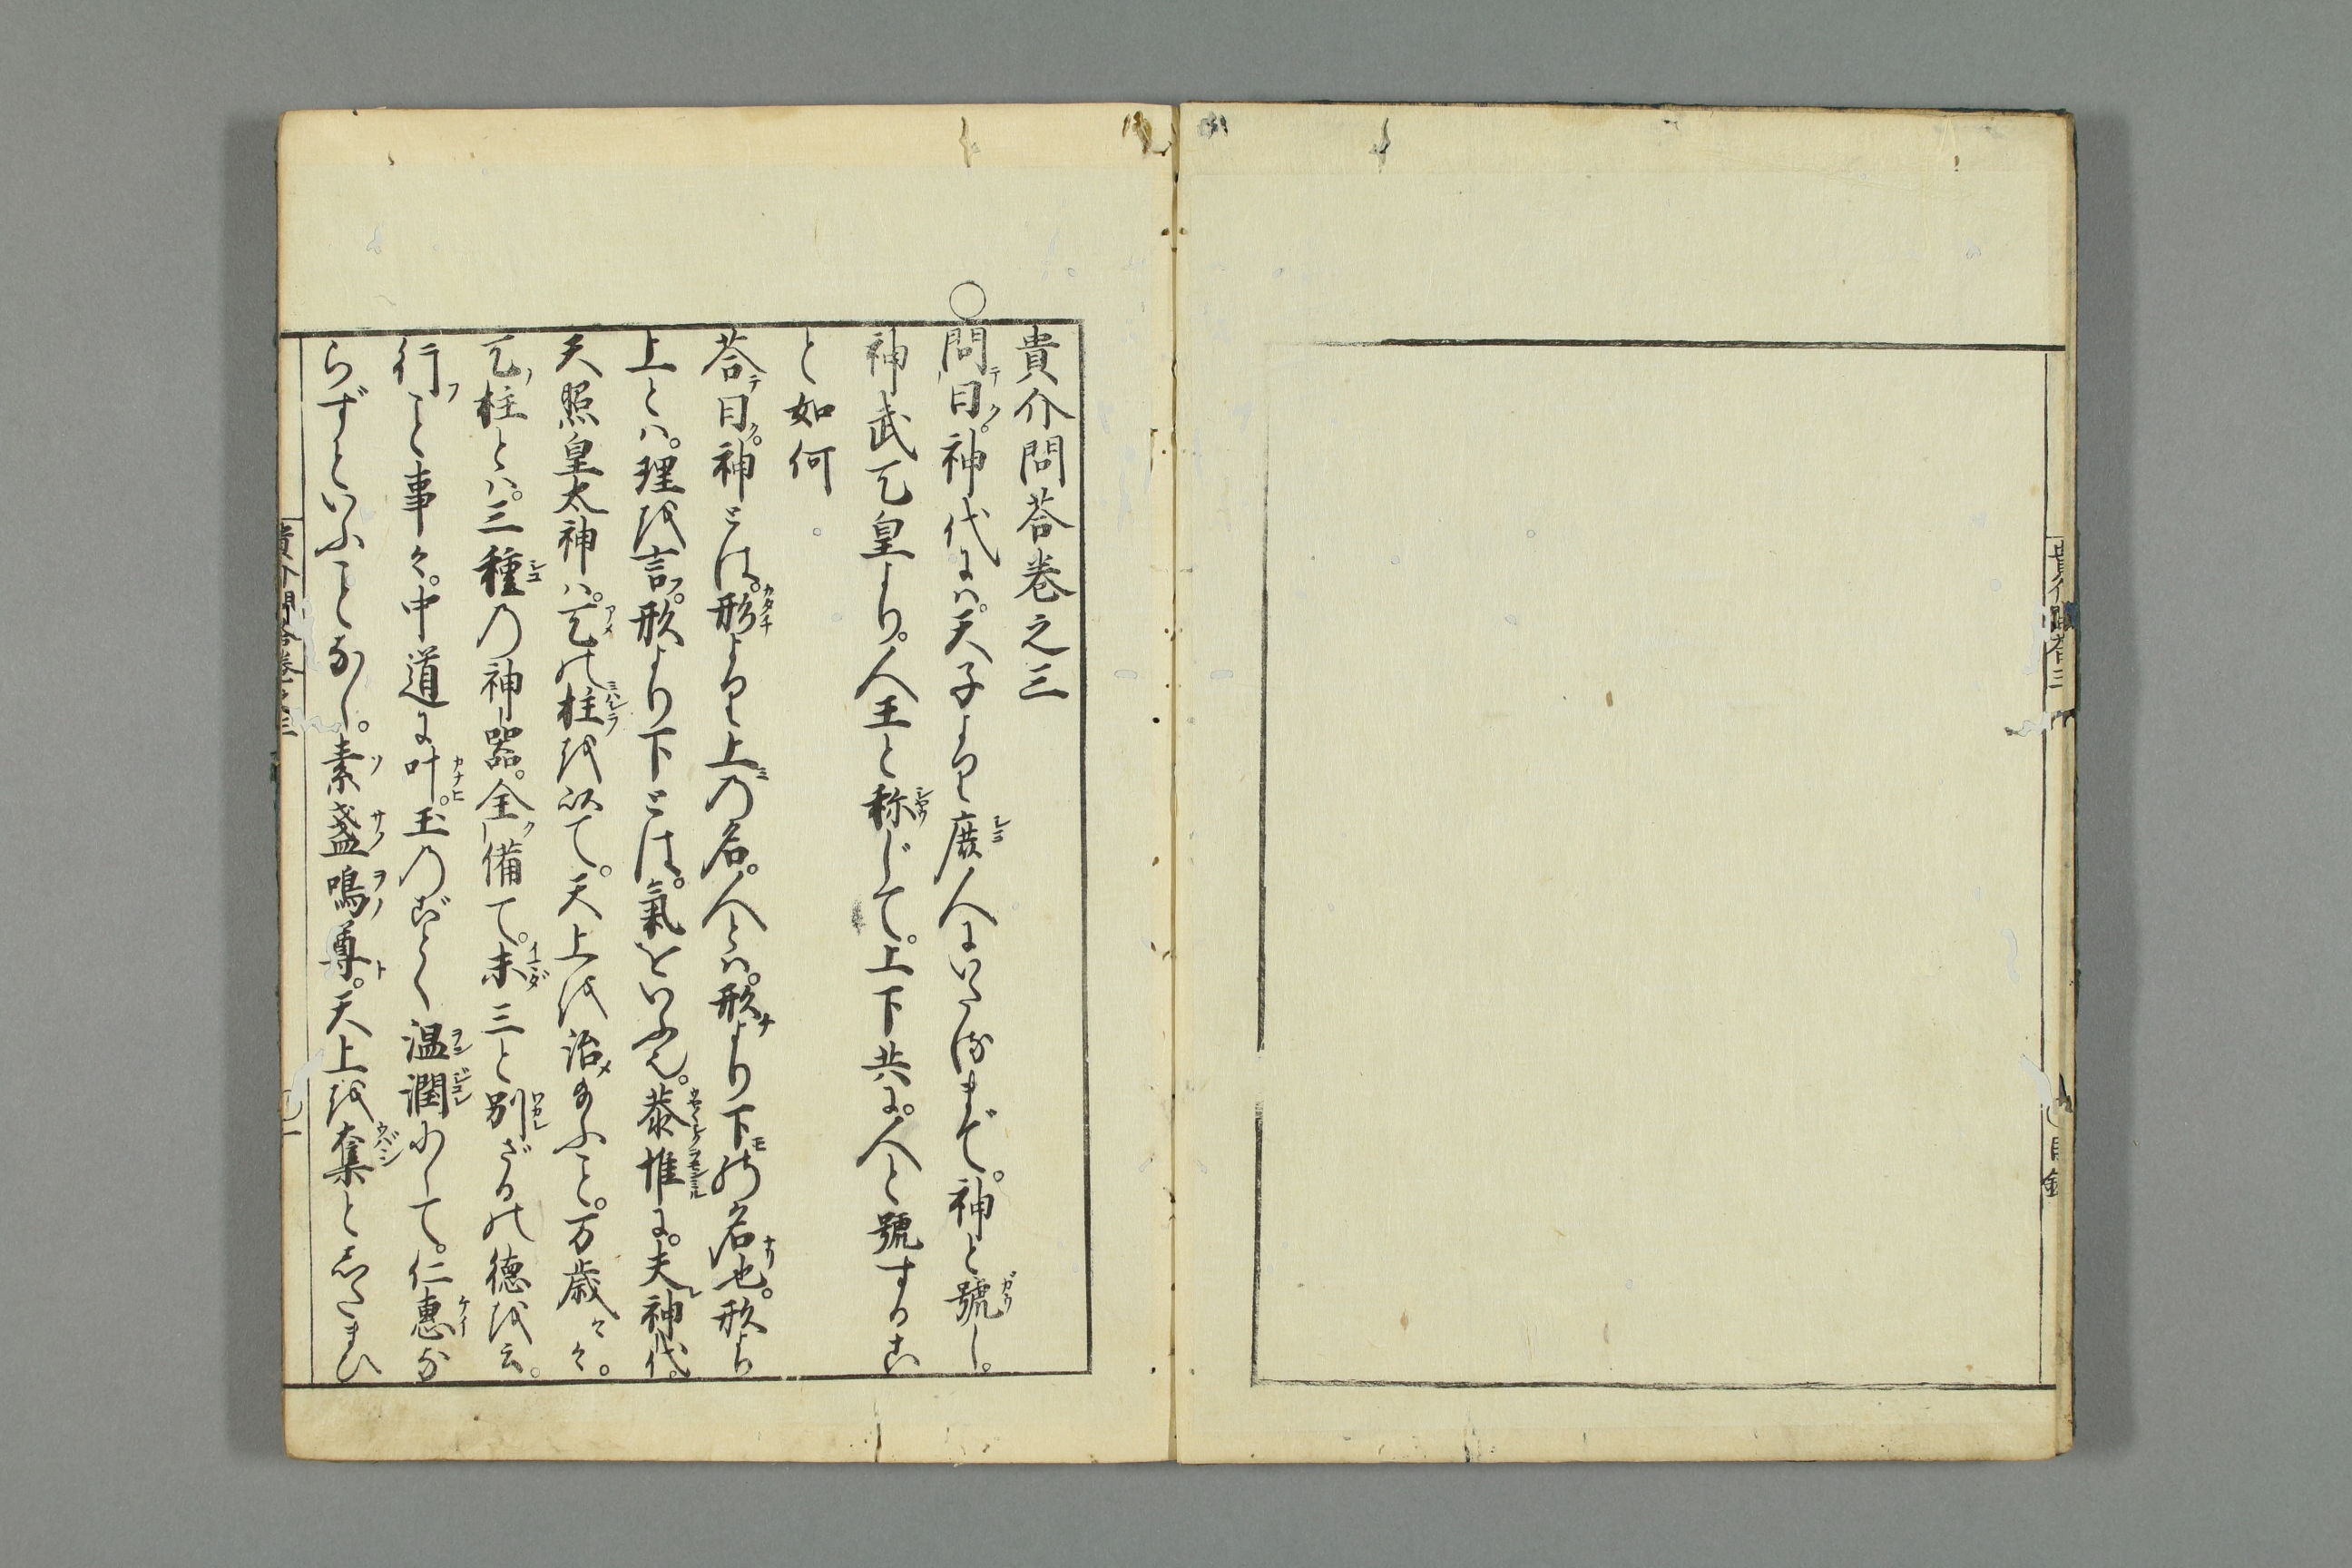 貴介問荅三
目録
貴介問荅巻之三
○問テ曰ク。神代にハ。天子より庻人にいたるまで。神と號し。
神武天皇より。人王と称じて。上下共に。人と號するこ
と如何
荅テ曰ク。神とは。形より上の名。人とハ。形より下の名也。形より
上とハ。理を言フ。形より下とは。氣をいふ也。恭惟に。夫神代。
天照皇太神ハ。天の柱を以て。天上を治メ給ふこと。万歳々々。
天ノ柱とハ。三種の神器。全ク備て。未三と別ざるの徳を云。
行フこと事々。中道に叶。玉のごとく温潤にして。仁惠な
らずといふことなし。素盞嗚尊。天上を奪としたまひ
貴介問荅巻之三
一